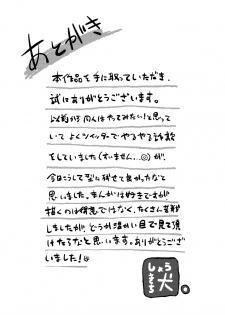 あとがき
本作品を手に取っていただき、
誠にありがとうございます。
以前から同人はやってみたい！と思って
いて よくツイッターで やるやる詐欺
をしていました(すいません…◎)が、
今日こうして形に残せて良かったなと
思いました。まんがは好きですが
描くのは得意ではなく、たくさん苦戦
しましたが、どうか温かい目で見て頂
けたらなと思います。ありがとうござ
いました！
しょう
犬